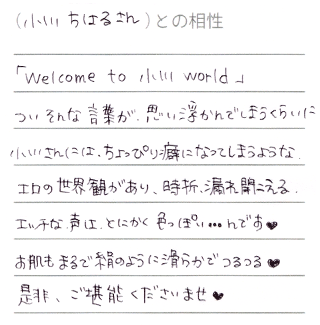 (小川 ちはるさん)との相性
「Welcome to 小川 world」
ついそんな言葉が、思い浮かんでしまうくらいに
小川さんには、ちょっぴり癖になってしまうような、
エロの世界観があり、時折、漏れ聞こえる、
エッチな声は、とにかく色っぽい…んです♥
お肌もまるで絹のように滑らかでつるつる♥
是非、ご堪能くださいませ♥